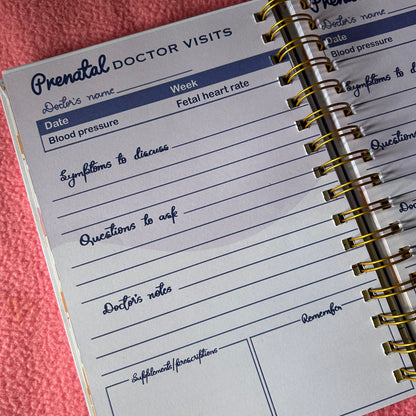 Prenatal DOCTOR VISITS
Doctor's name
Date Week
Blood pressure Fetal heart rate
Symptoms to discuss
Questions to ask
Doctor's notes
Supplements/prescriptions
Remember
Doctor's name
Date
Blood pressure
Symptoms to
Questions